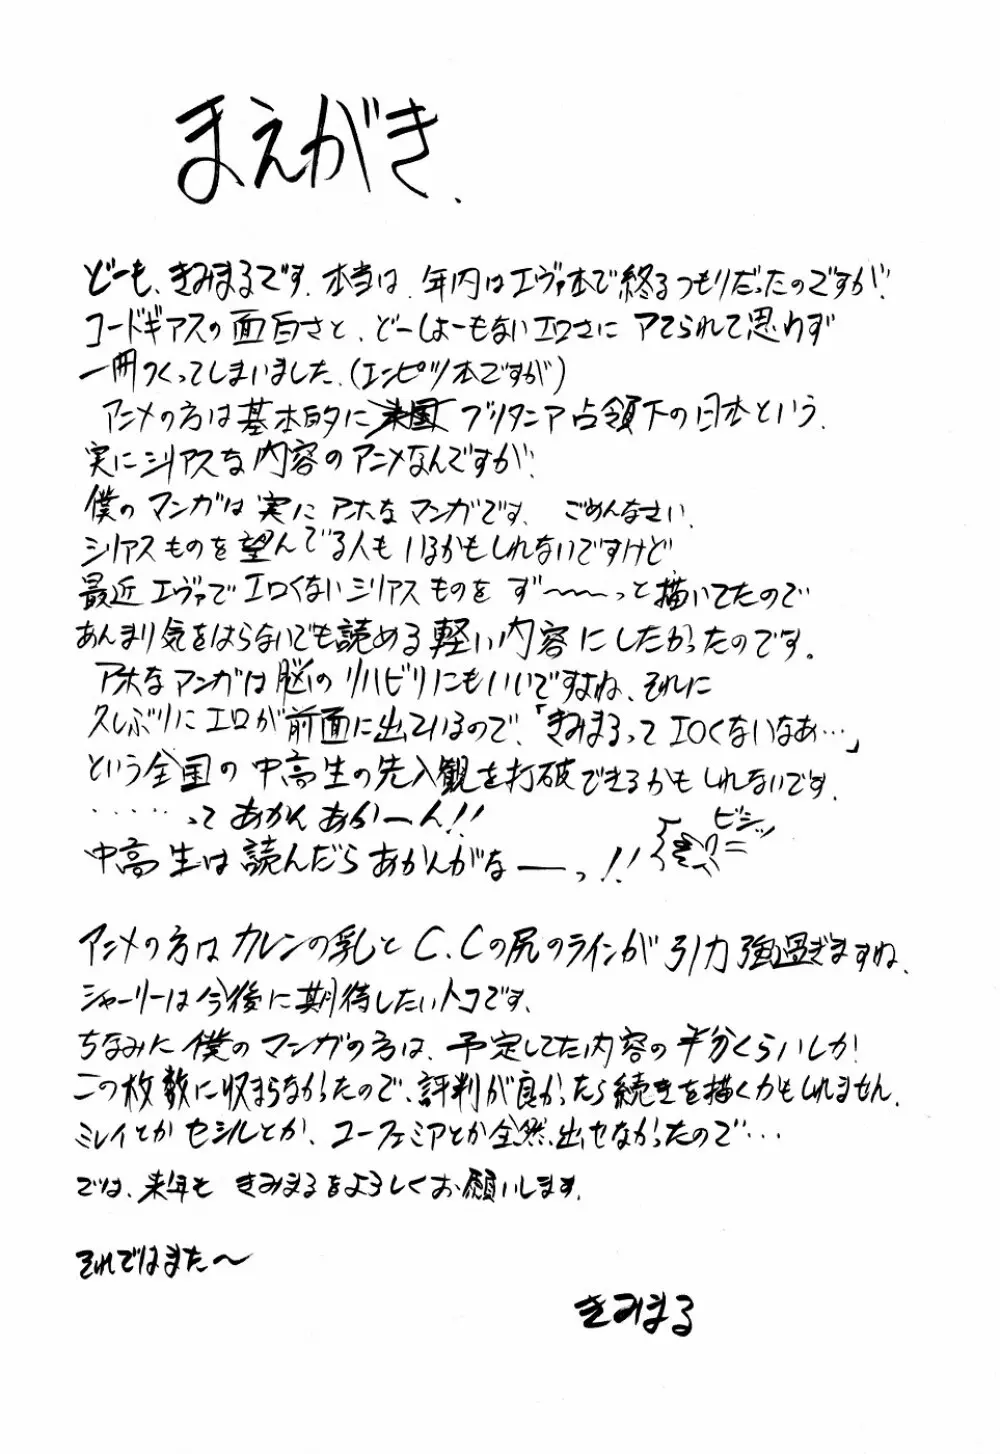 まえがき.
どーも、きみまるです。本当は、年内はエヴァ本で終るつもりだったのですが、
コードギアスの面白さと、どーしょーもないエロさに アてられて思わず
一冊つくってしまいました。(エンピツ本ですが)
アニメの方は基本的に ブリタニア占領下の日本という、
実にシリアスな内容のアニメなんですが、
僕のマンガは実にアホなマンガです。 ごめんなさい。
シリアスものを望んでる人もいるかもしれないですけど
最近エヴァでエロくないシリアスものを ず〜〜〜っと描いてたので
あんまり気をはらないでも読める軽い内容にしたかったのです。
アホなマンガは脳のリハビリにもいいですよね、それに
久しぶりにエロが前面に出ているので、「きみまるってエロくないなあ…」
という全国の中高生の先入観を打破できるかもしれないです。
‥‥‥って あかん あかーん!!
ビシッ
中高生は読んだらあかんがなーーっ!!
アニメの方はカレンの乳とC.Cの尻のラインが引力強過ぎますね。
シャーリーは今後に期待したいトコです。
ちなみに僕のマンガの方は、予定してた内容の半分くらいしか
この枚数に収まらなかったので、評判が良かったら続きを描くかもしれません。
ミレイとかセシルとか、ユーフェミアとか全然出せなかったので…
では、来年も きみまるをよろしくお願いします。
それではまた〜
きみまる